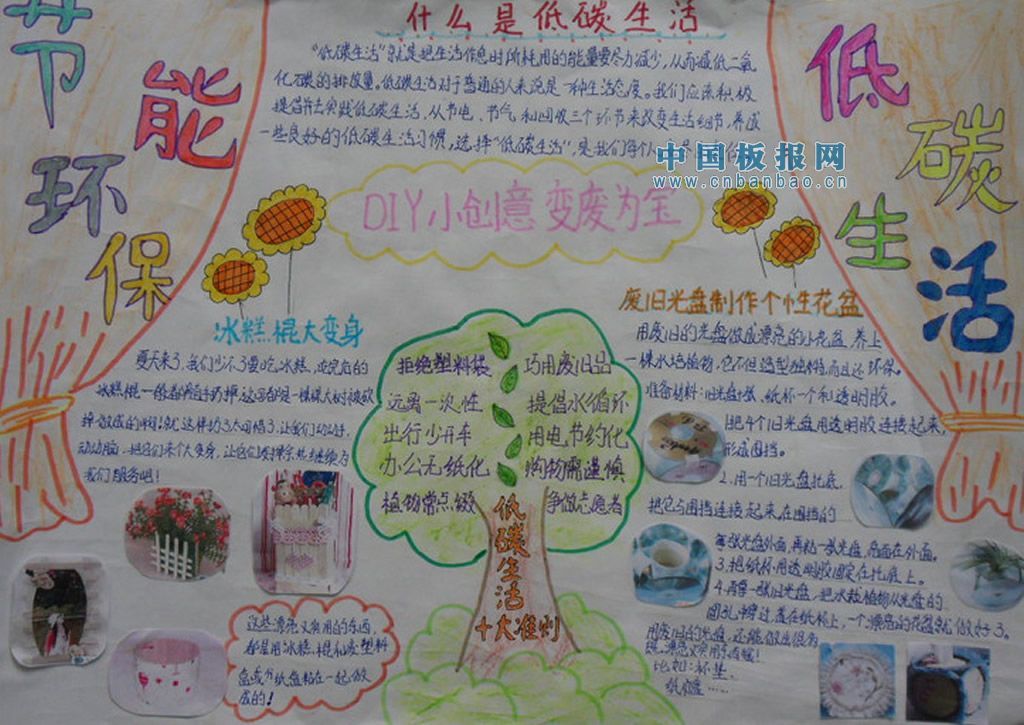 什么是低碳生活
"低碳生活"就是把生活作息时所耗用的能量要尽力减少，从而减低二氧
化碳的排放量。低碳生活对于普通的人来说是一种生活态度。我们应该积极
提倡并去实践低碳生活，从节电、节气和回收三个环节来改变生活细节，养成
一些良好的低碳生活习惯，选择"低碳生活"，是我们每个人
中国板报网
www.cnbanbao.cn
节能环保
低碳生活
DIY小创意 变废为宝
冰糕棍大变身
夏天来了，我们少不了要吃冰糕，吃完后的
冰糕棍一般都随手扔掉，这可都是一棵棵大树被砍
掉做成的啊！就这样扔了太可惜了，让我们动动手，
动动脑，把它们来个大变身，让它们
我们服务吧！
这些漂亮又实用的东西，
都是用冰糕棍和废塑料
盒或者纸盘粘在一起做
成的！
拒绝塑料袋 巧用废旧品
远离一次性 提倡水循环
出行少开车 用电节约化
办公无纸化 购物需谨慎
植物常点缀 争做志愿者
低碳生活
十大准则
废旧光盘制作个性花盆
用废旧的光盘做成漂亮的小花盆，养上
一棵水培植物，它不但造型独特，而且还环保。
准备材料：旧光盘4张、纸杯一个和透明胶。
1.把4个旧光盘用透明胶连接起来，
形成围挡。
2.用一个旧光盘托底，
把它与围挡连接起来，在围挡的
每张光盘外面，再粘一张光盘，亮面在外面。
3.把纸杯用透明胶固定在托底上。
4.再拿一张旧光盘，把水栽植物从光盘的
圆孔中穿过，盖在纸杯上，一个漂亮的花盆就做好了。
用废旧的光盘，还能做出很多
既漂亮又实用的东西呢！
比如：杯垫、
纸